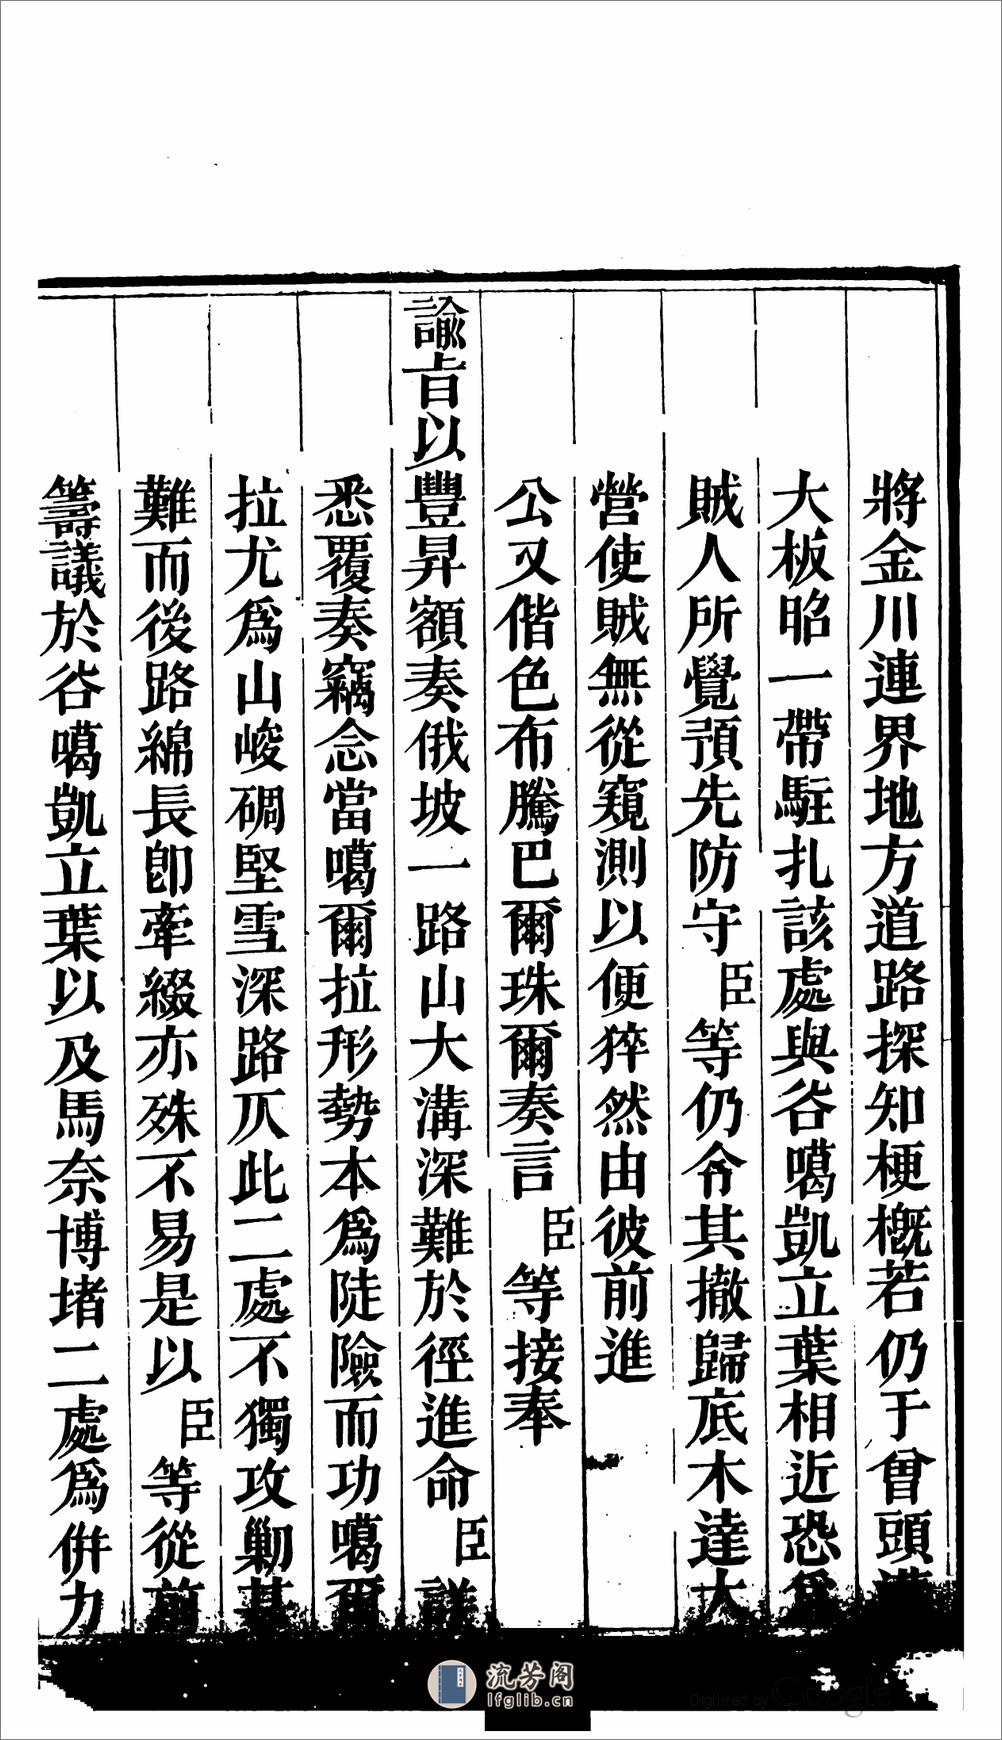 將金川連界地方道路探知梗概若仍于曾頭溝
大板昭一帶駐扎該處與谷噶凱立葉相近恐為
賊人所覺預先防守臣等仍令其撤歸底木達大
營使賊無從窺測以便猝然由彼前進
公又偕色布騰巴爾珠爾奏言臣等接奉
諭旨以豐昇額奏俄坡一路山大溝深難於徑進命臣詳
悉覆奏竊念當噶爾拉形勢本爲陡險而功噶爾
拉尤爲山峻碉堅雪深路仄此二處不獨攻勦甚
難而後路綿長卽牽綴亦殊不易是以臣等從前
籌議於谷噶凱立葉以及馬奈博堵二處爲倂力
流芳阁
lfglib.cn
Digitized by Google